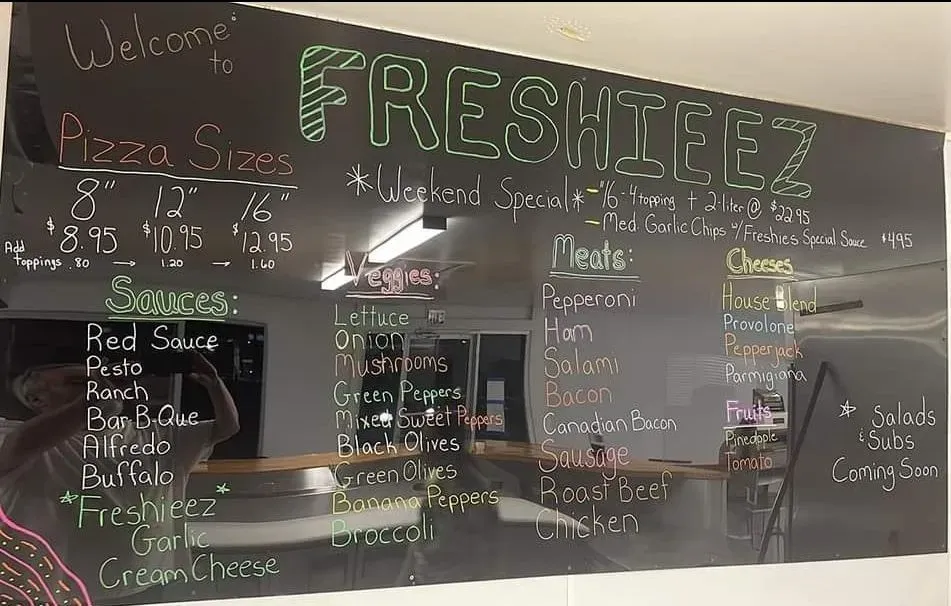 Welcome
to
FRESHIEEZ
Pizza Sizes
8" 12" 16"
$8.95 $10.95 $12.95
Add
toppings .80 → 1.20 → 1.60
*Weekend Special* - "16 - 4 topping + 2-liter @ $22.95
- Med. Garlic Chips w/Freshies Special Sauce $4.95
Sauces:
Red Sauce
Pesto
Ranch
Bar-B-Que
Alfredo
Buffalo
*Freshieez*
Garlic
Cream Cheese
Veggies:
Lettuce
Onion
Mushrooms
Green Peppers
Mixed Sweet Peppers
Black Olives
Green Olives
Banana Peppers
Broccoli
Meats:
Pepperoni
Ham
Salami
Bacon
Canadian Bacon
Sausage
Roast Beef
Chicken
Cheeses
House Blend
Provolone
Pepperjack
Parmigiana
Fruits
Pineapple
Tomato
* Salads
& Subs
Coming Soon